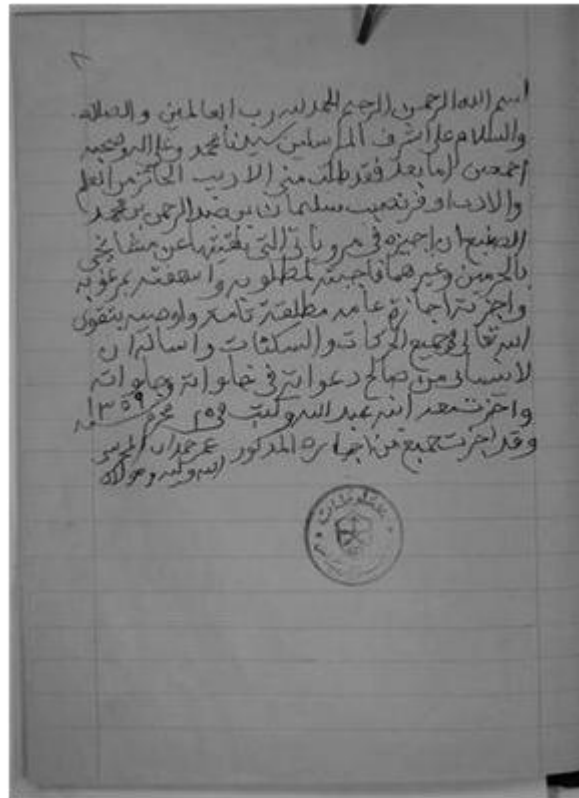 ٢
بسم الله الرحمن الرحيم الحمد لله رب العالمين والصلاة
والسلام على اشرف المرسلين سيدنا محمد وعلى اله وصحبه
اجمعين اما بعد فقد طلب منى الاديب الحائز من العلم
والادب اوفر نصيب سليمان بن عبد الرحمن بن محمد
الصنيع ان اجيزه فى مروياتى التى تلقيتها عن مشايخى
بالحرمين وغيرهما فاجبته لمطلوبه واسعفته بمرغوبه
واجزته اجازة عامه مطلقة تامة واوصيه بتقوى
الله تعالى فى جميع الحركات والسكنات واساله ان
لا ينسانى من صالح دعواته فى خلواته وجلواته
واجزت بعد ابنه عبد الله وكتب فى محرم سنه ١٣٥٩
وقد اجزت جميع من اجازه المذكور عمر حمدان المحرسى